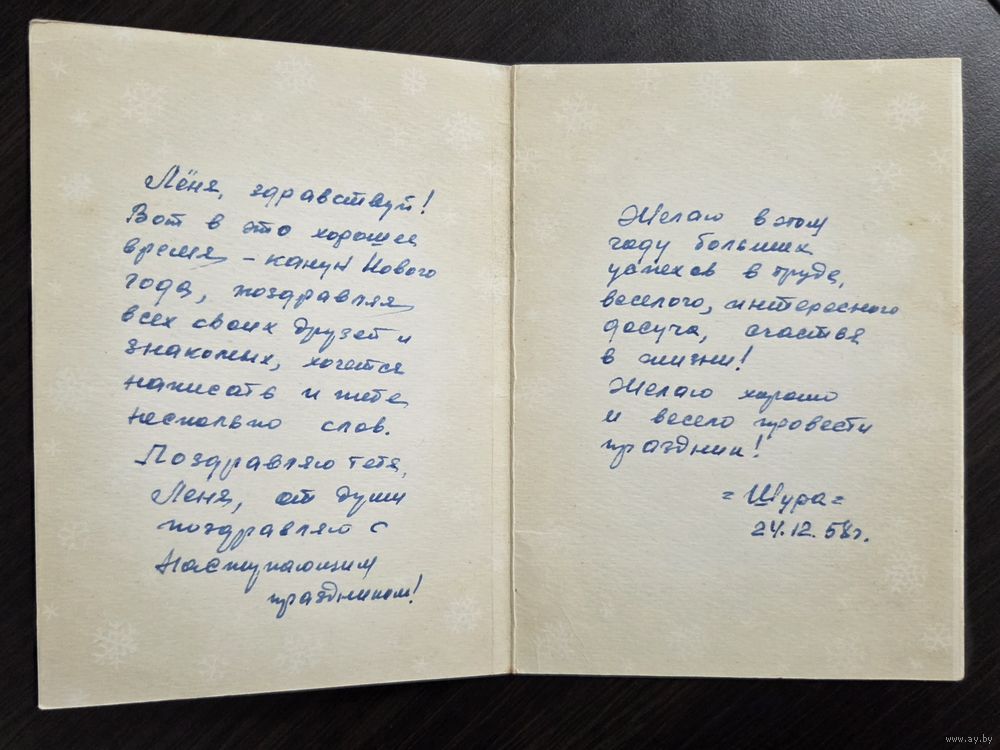 Лёня, здравствуй!
Вот в это хорошее
время – канун Нового
года, поздравляя
всех своих друзей и
знакомых, хочется
написать и тебе
несколько слов.
Поздравляю тебя,
Лёня, от души
поздравляю с
наступающим
праздником!
Желаю в этом
году больших
успехов в труде,
веселого, интересного
досуга, счастья
в жизни!
Желаю хорошо
и весело провести
праздник!
= Шура =
24.12.58г.
www.ay.by